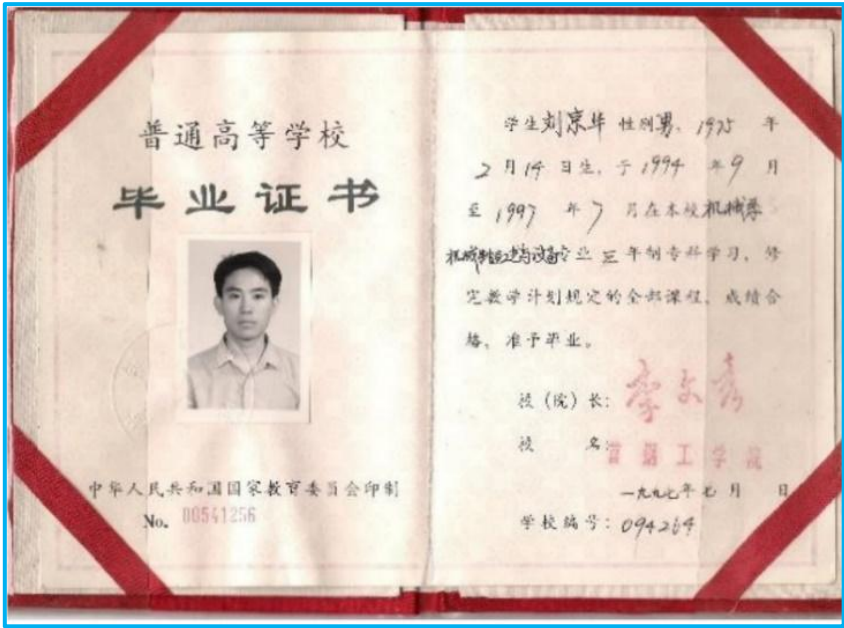 普通高等学校
毕业证书
中华人民共和国国家教育委员会印制
No. 00541256
学生刘京华 性别男，1975 年
2 月 14 日生，于 1994 年 9 月
至 1997 年 7 月在本校机械系
机械制造工艺与设备专业 三 年制专科学习，修
完教学计划规定的全部课程，成绩合
格，准予毕业。
校（院）长：李文秀
校 名：首钢工学院
一九九七年七月 日
学校编号：094264